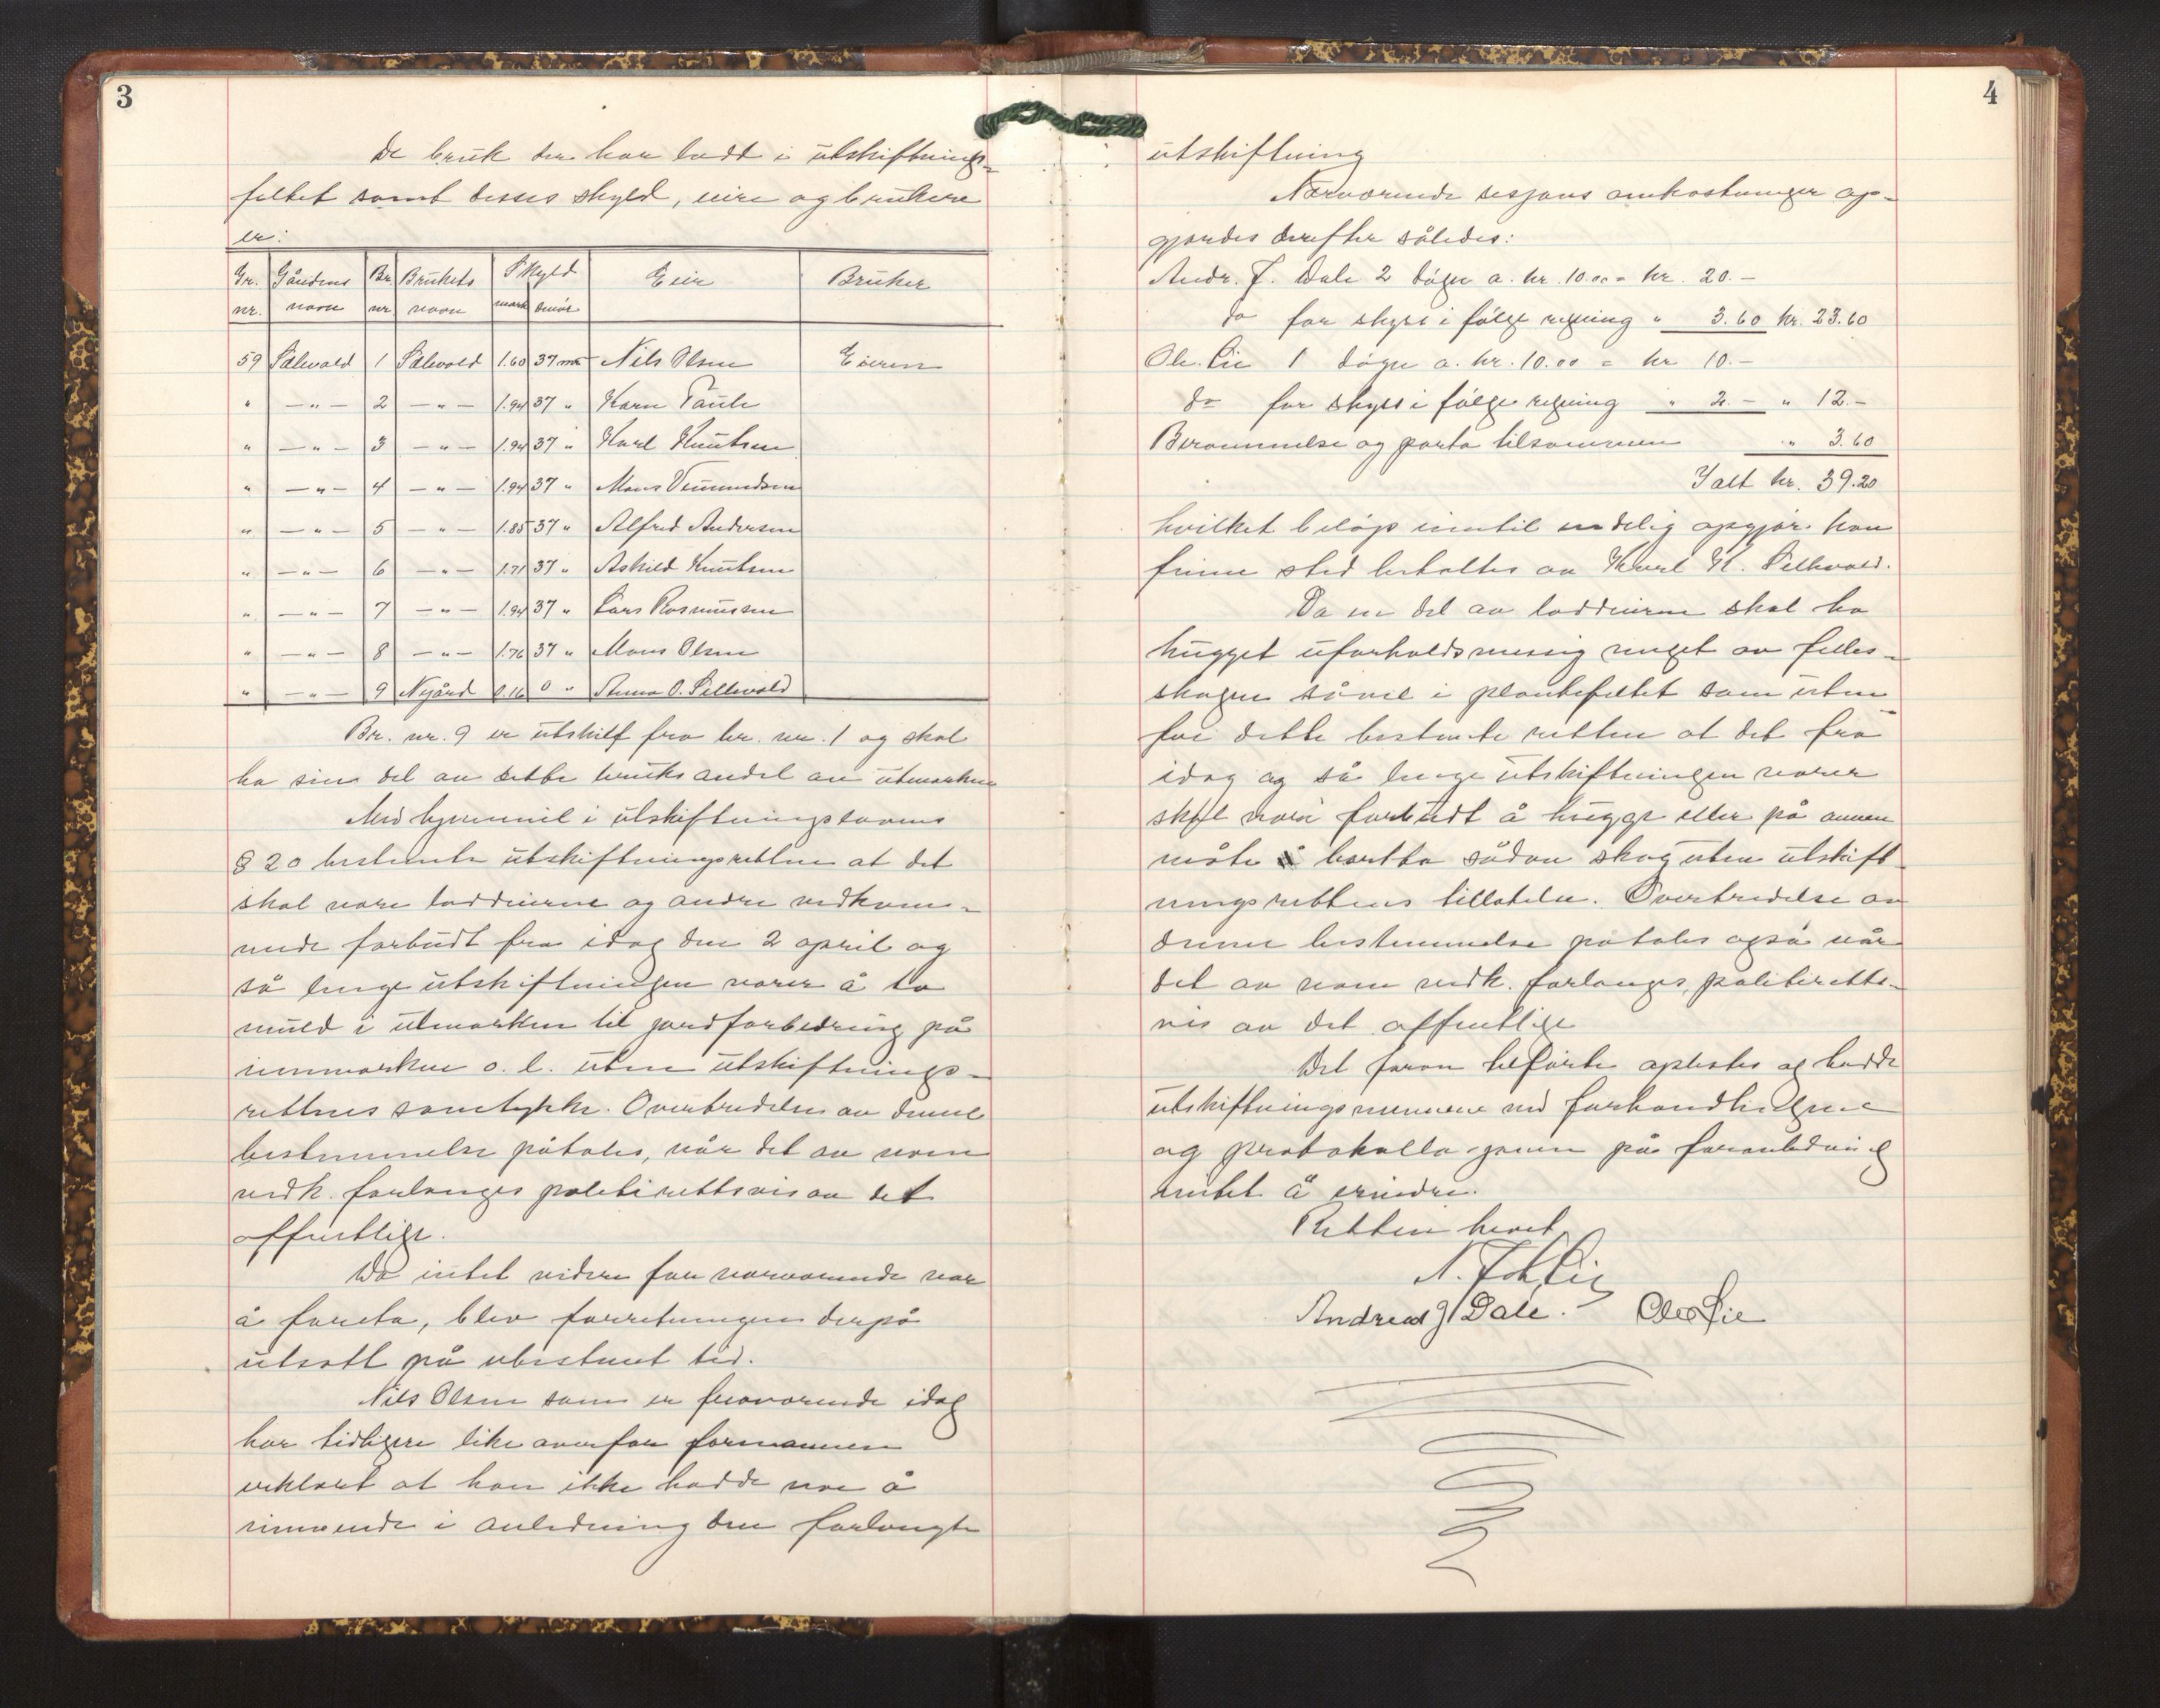 3
De bruk der har lodd i utskiftnings-
feltet samt disses skyld, eiere og brukere
er:
Gr. Gårdens Br. Brukets Skyld Eier Bruker
nr. navn nr. navn mark
59 Sælevold 1 Sælevold 1.60 37 Nils Olsen Eieren
" —"— 2 —"— 1.94 37 " Karn Pauls
" —"— 3 —"— 1.94 37 " Karl Knutsen
" —"— 4 —"— 1.94 37 " Mons Vemundsen
" —"— 5 —"— 1.85 37 " Alfred Andersen
" —"— 6 —"— 1.71 37 " Askild Knutsen
" —"— 7 —"— 1.94 37 " Lars Rasmussen
" —"— 8 —"— 1.76 37 " Mons Olsen
" —"— 9 Nygård 0.16 0 " Anna O. Sellevold
Br. nr. 9 er utskilt fra br. nr. 1 og skal
ha sin del av dette bruks andel av utmarken
Med hjemmel i utskiftningslovens
§ 20 bestemte utskiftningsretten at det
skal være loddeierne og andre vedkom-
mende forbudt fra idag den 2 april og
så lenge utskiftningen varer å ta
muld i utmarken til jordforbedring på
innmarken o. l. uten utskiftnings-
rettens samtykke. Overtredelse av denne
bestemmelse påtales, når det av noen
vedk. forlanges politirettsvis av det
offentlige.
Da intet videre for nærværende var
å foreta, blev forretningen derpå
utsatt på ubestemt tid.
Nils Olsen som er fraværende idag
har tidligere like overfor formannen
erklært at han ikke hadde noe å
innvende i anledning den forlangte
4
utskiftning
Nærværende sesjons omkostninger op-
gjordes derefter således:
Andr. J. Dale 2 døgn a. kr. 10.00 = kr. 20.—
do for skyss i følge regning " 3.60 kr. 23.60
Ole Lie 1 døgn a. kr. 10.00 = kr 10.—
do for skyss i følge regning " 2.— " 12.—
Berammelse og porto tilsammen " 3.60
Ialt kr. 39.20
hvilket beløp inntil endelig opgjør kan
finne sted betaltes av Karl K. Sellevold.
Da en del av loddeierne skal ha
hugget uforholdsmessig meget av felles-
skogen såvel i plantefeltet som uten-
for dette bestemte retten at det fra
idag og så lenge utskiftningen varer
skal være forbudt å hugge eller på annen
måte å bortta sådan skog uten utskift-
ningsrettens tillatelse. Overtredelse av
denne bestemmelse påtales også når
det av noen vedk. forlanges, politiretts-
vis av det offentlige
Det foran tilførte oplestes og hadde
utskiftningsmennene ved forhandlingene
og protokollasjonen på foranledning
intet å erindre.
Retten hevet
Andreas J Dale. Ole Lie